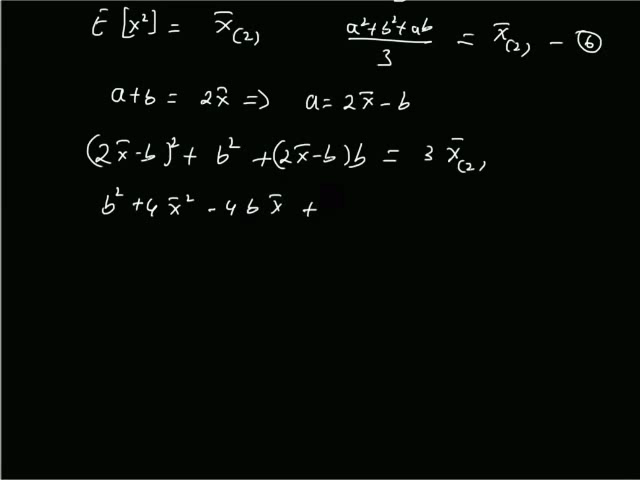 E [x²] = x̄₍₂₎   (a²+b²+ab)/3 = x̄₍₂₎ - ⑥
a+b = 2x̄ => a = 2x̄ - b
(2x̄-b)² + b² + (2x̄-b)b = 3 x̄₍₂₎
b² + 4x̄² - 4bx̄ +